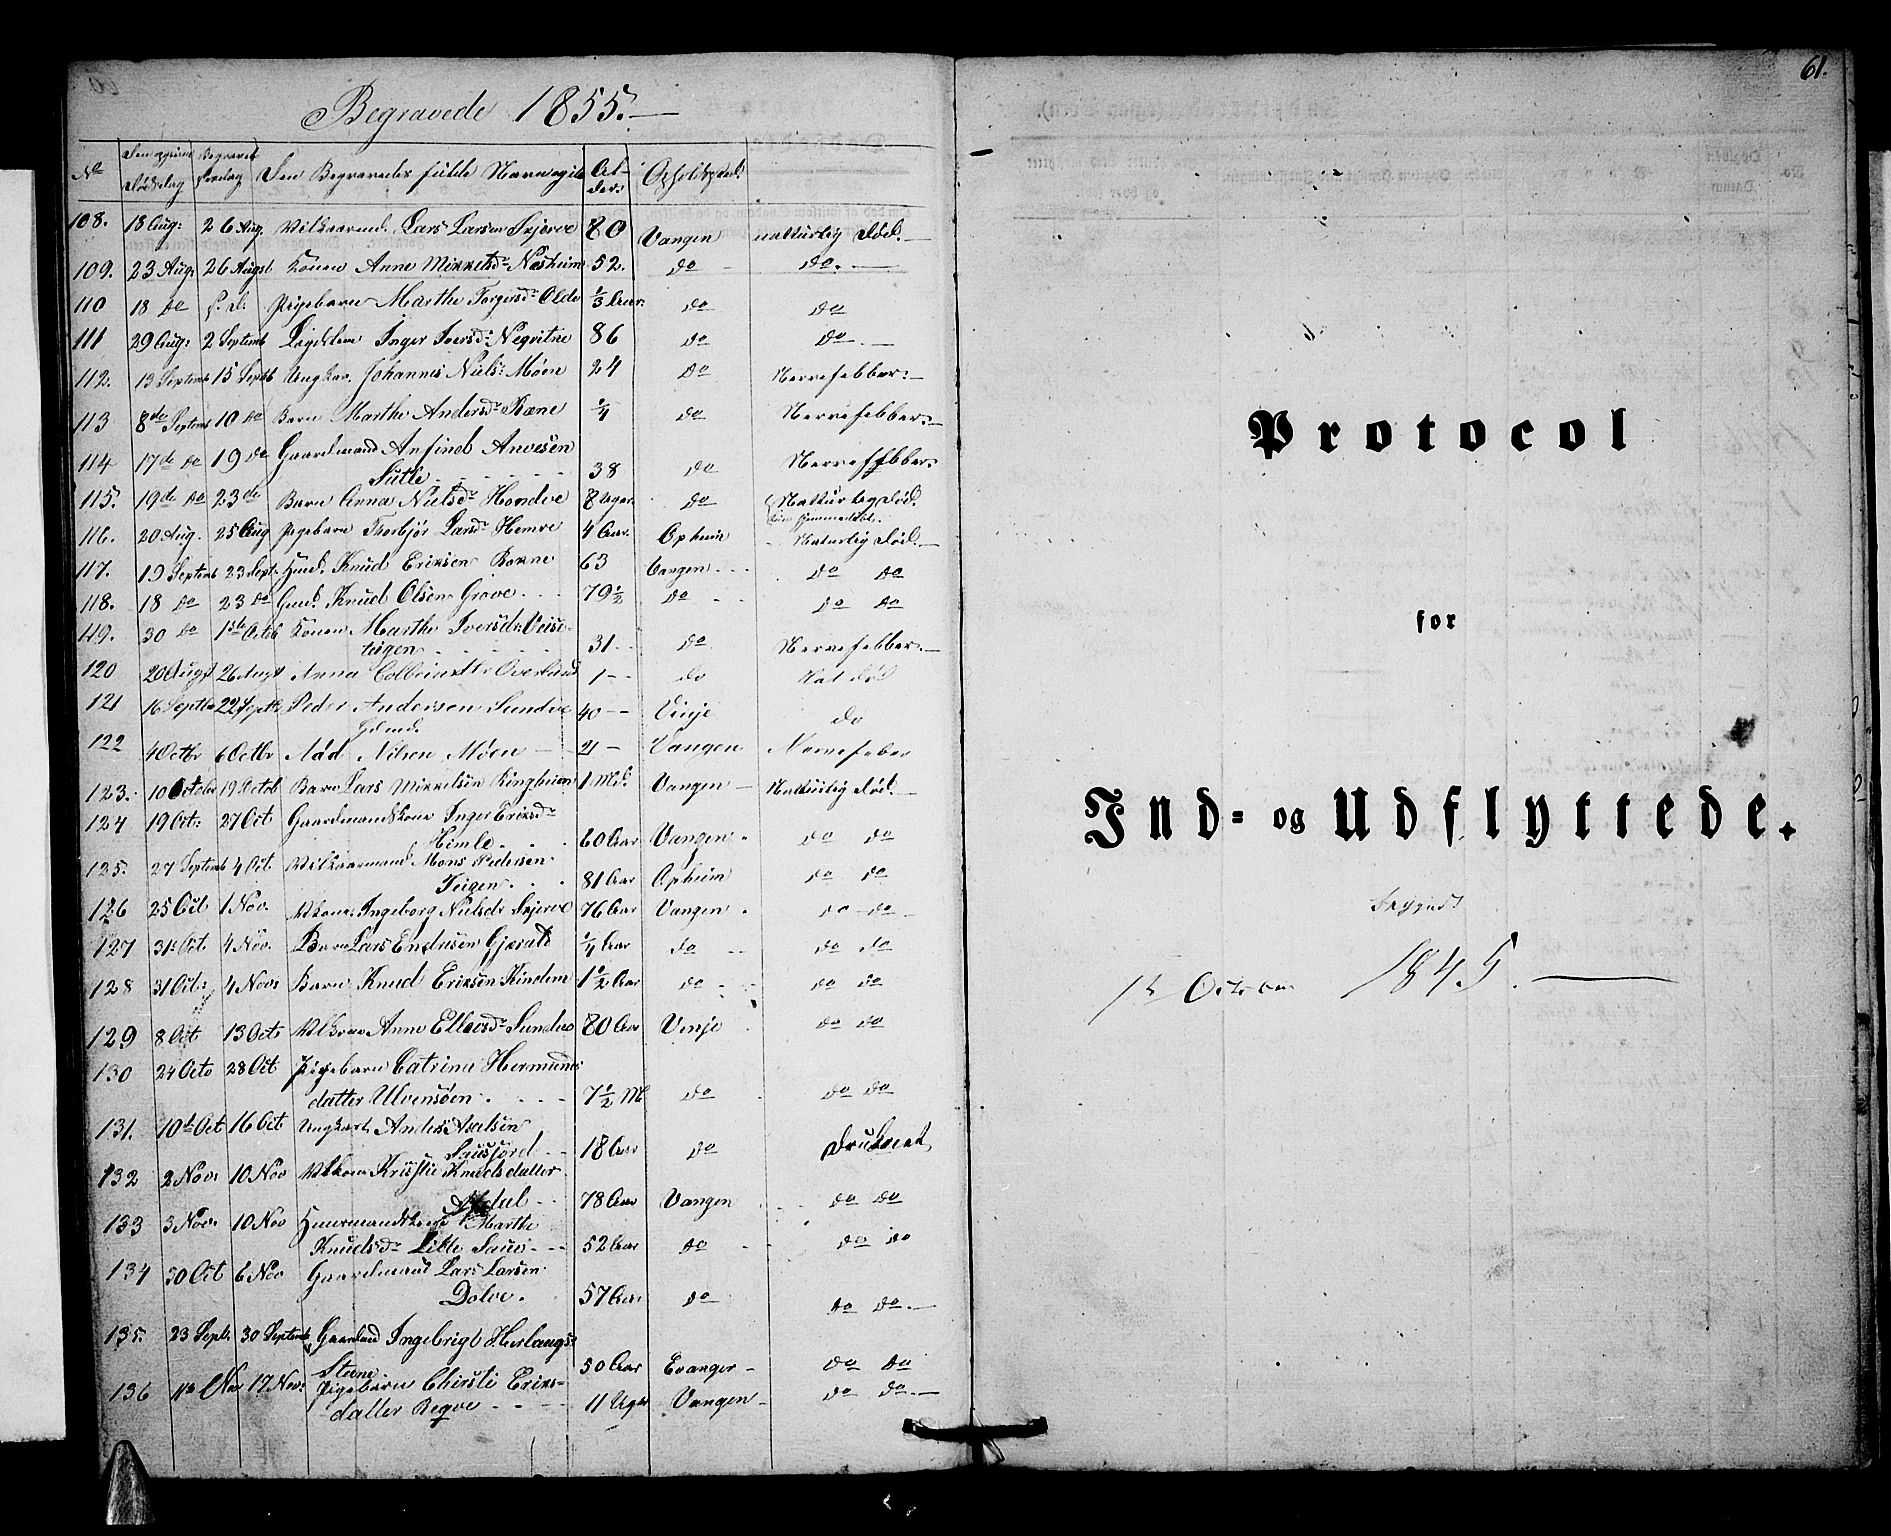 Begravede 1855.
No
Dødsdag
Begravet
Den Begravedes fulde Navn
Al-
der
Opholdssted
108. 18 Aug: 26 Aug. Vilkaarmd. Lars Larsen Skjerve 80 Vangen naturlig Død.
109. 23 Aug. 26 Augst Konen Anne Mikkelsdr Næsheim 52. do do.
110 18 do Pigebarn Marthe Torgersdr Olde 1/3 Aar: do do
111 29 Aug: 2 Septemb Inger Iversd: Negvitne 86 do do.
112. 13 Septemb 15 Septb Ungkar. Johannes Niels: Møen 24 do Nervefebber:
113 8de Septemb 10 do Barn Marthe Andersdr Ræne 1/4 do Nervefebber:
114 17de do 19 do Gaardmand Anfind Anvesen
Sutle 38 do Nervefebber:
115. 19de do 23de Barn Anna Nielsdr Hondve 8 Uger do Naturlig Død.
116. 20 Aug. 25 Aug Pigebarn Thorbjør Larsdr Hemre 4 Aar. Opheim Naturlig Død.
117. 19 Septemb 23 Sept. Huusd. Knud Eriksen Rokne 63 Vangen do do
118. 18 do 23 do Knud Olsen Grove 79 1/2 do do do
119. 30 do 1ste Octob Konen Marthe Iversdr: Veise-
teigen 31. do Nervefebber:
120 20 Augst 26 Augst Anna Colbeinsdtr Overland 1 do Nat død
121 16 Septbr 22 Septb Peder Andersen Sundve 40 Vinje do
122 4 Octbr 6 Octbr Aad Nilsen Møen 21 Vangen Nervefeber
123. 10 Octobr 19 Octob Barn Lars Mikkelsen Ringheim 1 Md. Vangen Naturlig Død.
124 19 Oct: 27 Oct Gaardmandskone Inger Eriksdr
Himle 60 Aar Vangen do do
125. 27 Septemb 4 Oct Vilkaarmand Mons Pedersen
Teigen 81 Aar Opheim do do
126 25 Oct 1 Nov. Vlkone Ingeborg Nielsdr Skjerve 76 Aar Vangen do do
127 31 Oct 4 Nov. Barn Lars Endresen Gjerald 1/4 Aar do do do
128 31 Oct: 4 Nov: Barn Knud Eriksen Kindem 1 1/2 Aar do do do
129 8 Oct 13 Octo Vlkone Anne Ellevsdr Sundve 80 Aar Vinje do do
130 24 Octo 28 Oct Pigebarn Catrina Hermunds
datter Ulvensøen 7 1/2 M do do do
131. 10de Oct 16 Oct Ungkarl Anders Axelsen
Sausjord 18 Aar do Druknet
132 2 Nov: 10 Nov Vlkone Kristie Knudsdatter
78 Aar Vangen do do
133 3 Nov: 10 Nov Huusmandskone Marthe
Knudsdr Lille Saue 52 Aar do do do
134 30 Oct 6 Nov Gaardmand Lars Larsen
Dolve. 57 Aar do do do.
135. 23 Sept. 30 Septemb Ingebrigt Herlaugs:
Steene 50 Aar Evanger do do
136 11te Nov 17 Nov: Pigebarn Christi Eriks-
datter Reqve 11 Uger Vangen do do.
61.
Protocol
for
Ind- og Udflyttede.
1845.